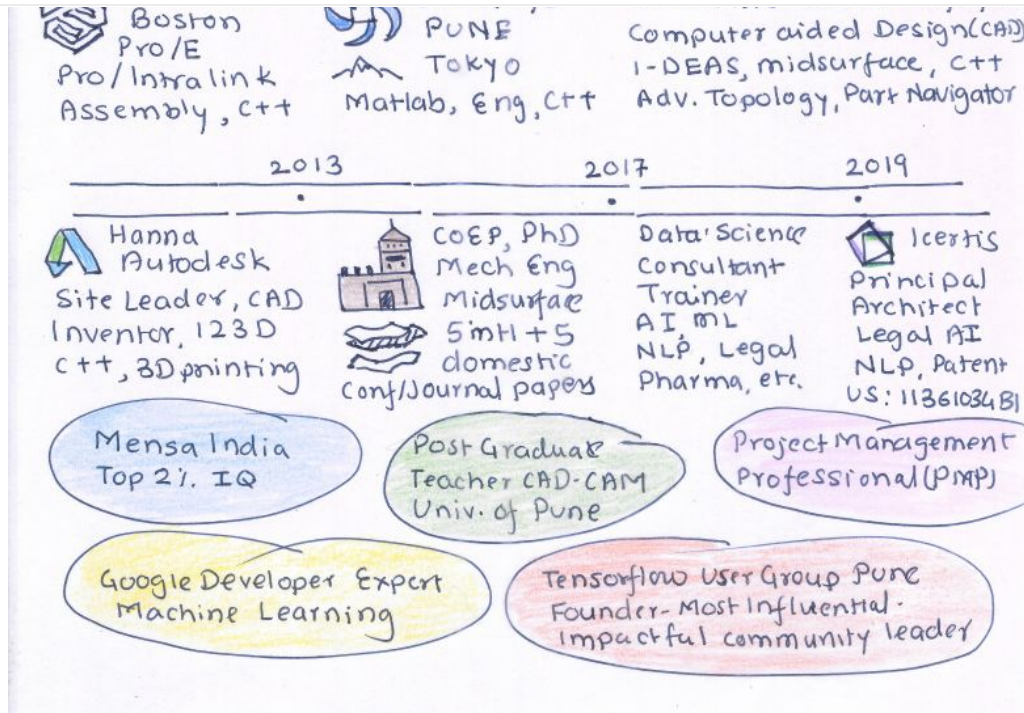 Boston
Pro/E
Pro/Intralink
Assembly, C++
PUNE
TOKYO
Matlab, Eng, C++
Computer aided Design(CAD)
I-DEAS, midsurface, C++
Adv. Topology, Part Navigator
2013
2017
2019
Hanna
Autodesk
Site Leader, CAD
Inventor, 123D
C++, 3D printing
COEP, PhD
Mech Eng
Midsurface
5 intl + 5
domestic
Conf/Journal papers
Data Science
Consultant
Trainer
AI, ML
NLP, Legal
Pharma, etc.
Icertis
Principal
Architect
Legal AI
NLP, Patent
US: 11361034B1
Mensa India
Top 2% IQ
Post Graduate
Teacher CAD-CAM
Univ. of Pune
Project Management
Professional (PMP)
Google Developer Expert
Machine Learning
Tensorflow User Group Pune
Founder-Most Influential.
Impactful community leader